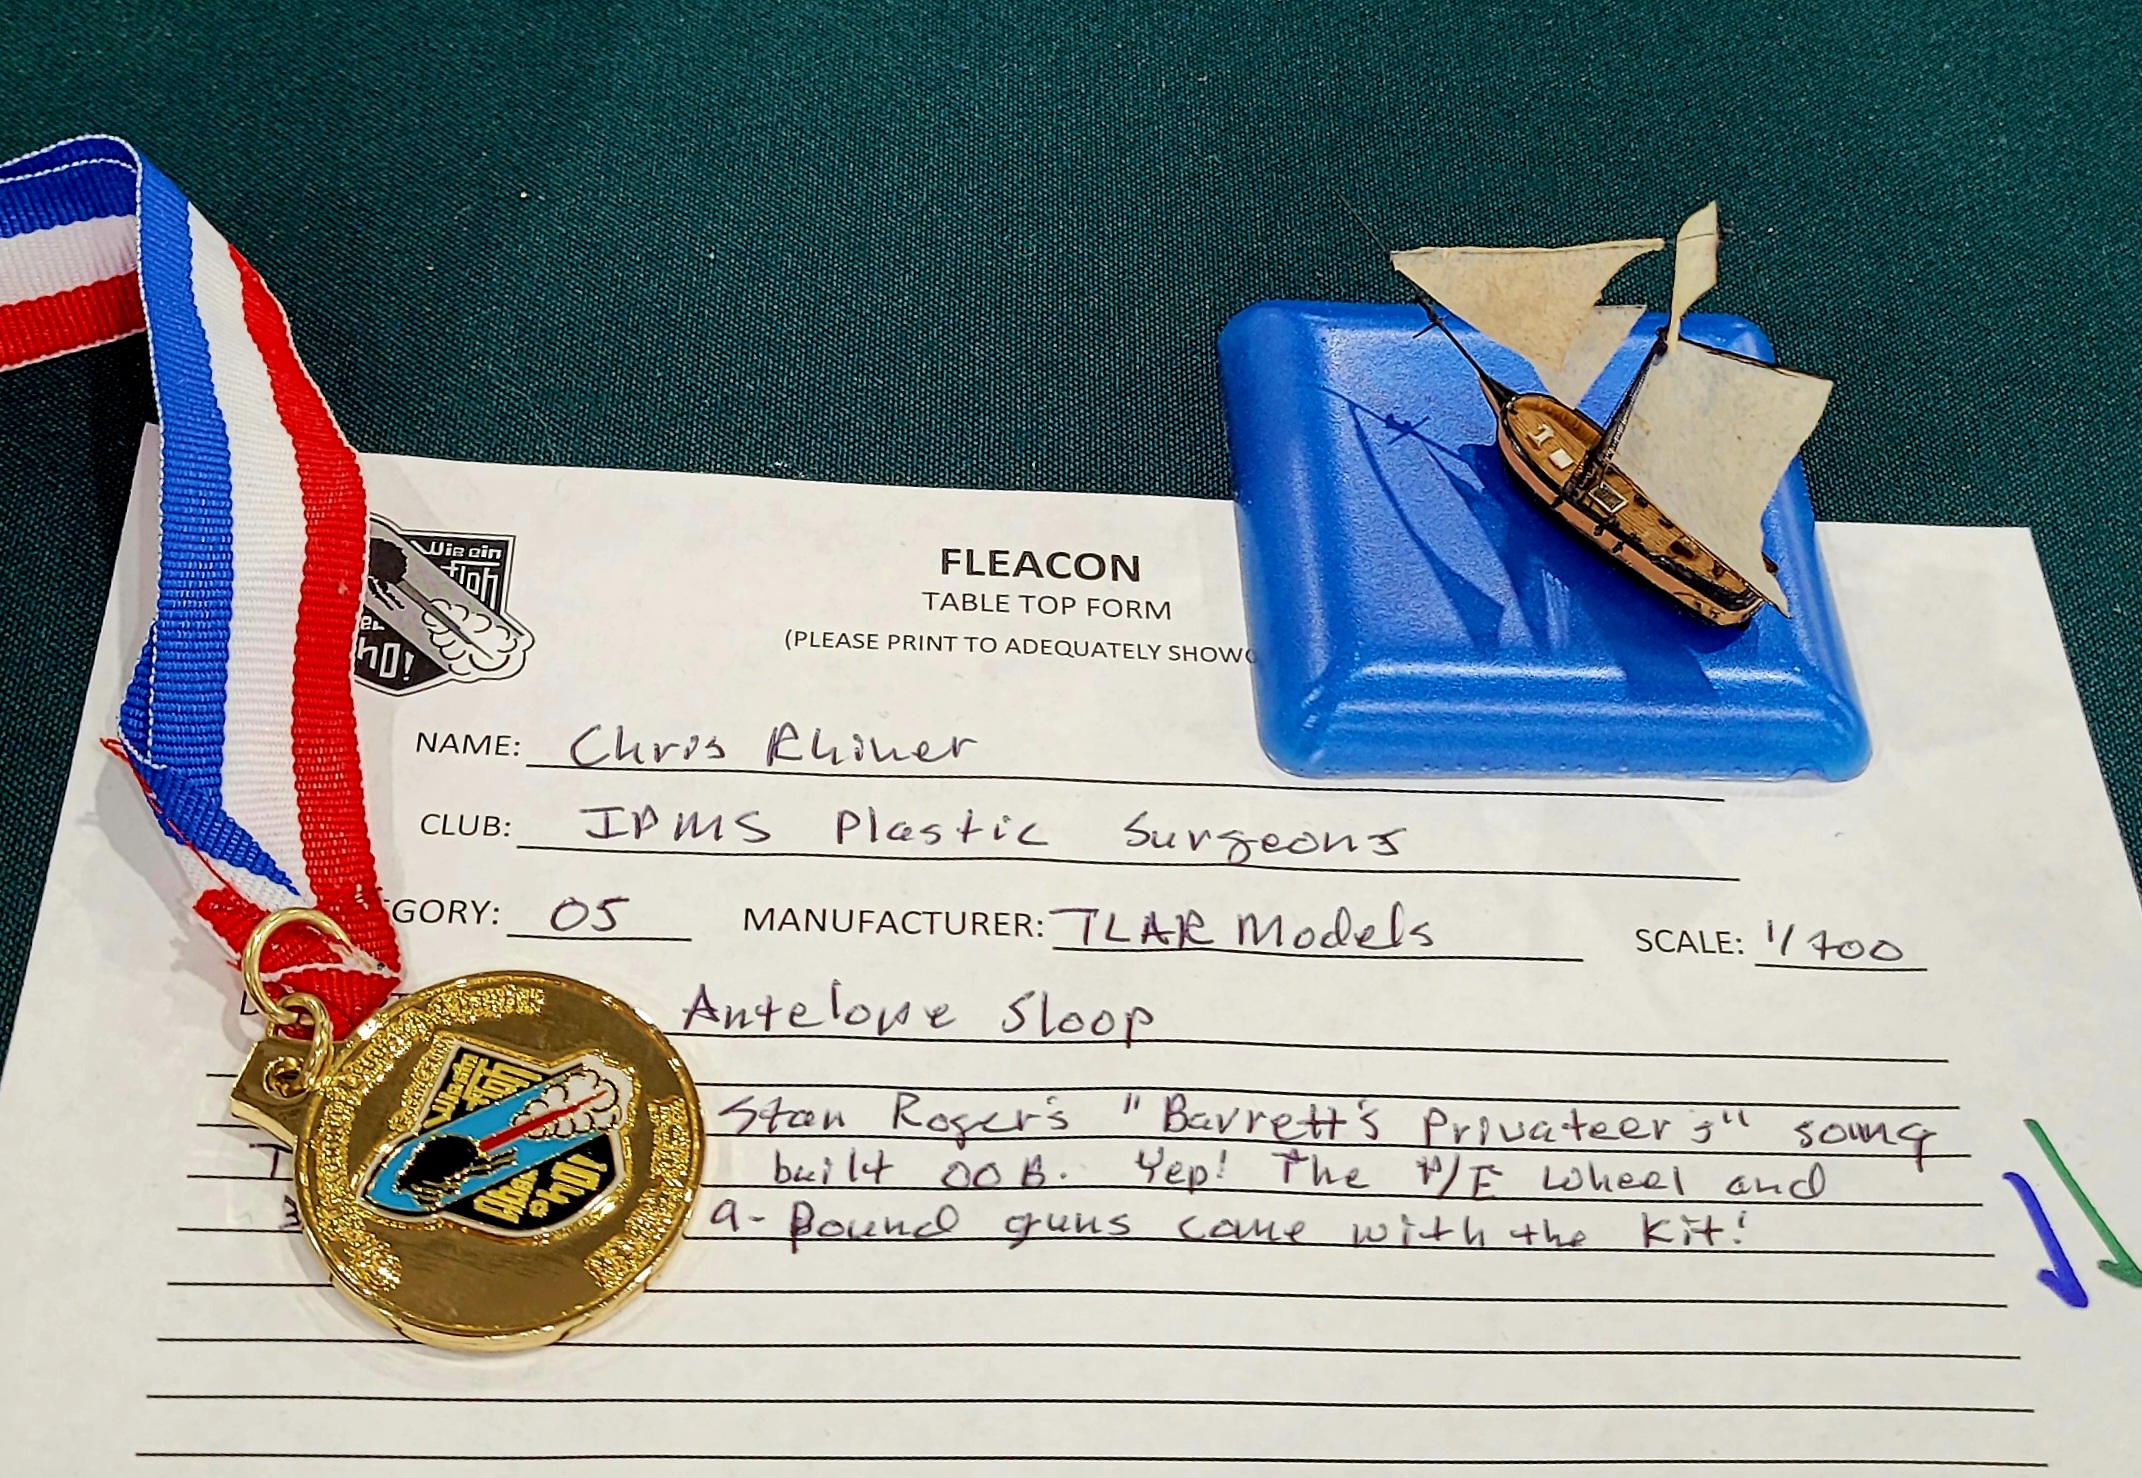 Wie ein
floh
ho!
FLEACON
TABLE TOP FORM
(PLEASE PRINT TO ADEQUATELY SHOWC
NAME: Chris Rhiner
CLUB: IPMS Plastic Surgeons
GORY: 05 MANUFACTURER: TLAR Models SCALE: 1/700
Antelope Sloop
Stan Roger's "Barrett's Privateer's" song
built OOB. Yep! The P/E wheel and
Pound guns came with the kit!
Wie ein
floh
oho!